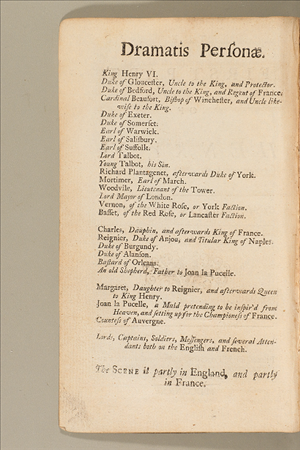 Dramatis Personæ.
King Henry VI.
Duke of Gloucester, Uncle to the King, and Protector.
Duke of Bedford, Uncle to the King, and Regent of France.
Cardinal Beaufort, Bishop of Winchester, and Uncle like-
wise to the King.
Duke of Exeter.
Duke of Somerset.
Earl of Warwick.
Earl of Salisbury.
Earl of Suffolk.
Lord Talbot.
Young Talbot, his Son.
Richard Plantagenet, afterwards Duke of York.
Mortimer, Earl of March.
Woodvile, Lieutenant of the Tower.
Lord Mayor of London.
Vernon, of the White Rose, or York Faction.
Basset, of the Red Rose, or Lancaster Faction.
Charles, Dauphin, and afterwards King of France.
Reignier, Duke of Anjou, and Titular King of Naples.
Duke of Burgundy.
Duke of Alanson.
Bastard of Orleans.
An old Shepherd, Father to Joan la Pucelle.
Margaret, Daughter to Reignier, and afterwards Queen
to King Henry.
Joan la Pucelle, a Maid pretending to be inspir'd from
Heaven, and setting up for the Championess of France.
Countess of Auvergne.
Lords, Captains, Soldiers, Messengers, and several Atten-
dants both on the English and French.
The SCENE is partly in England, and partly
in France.